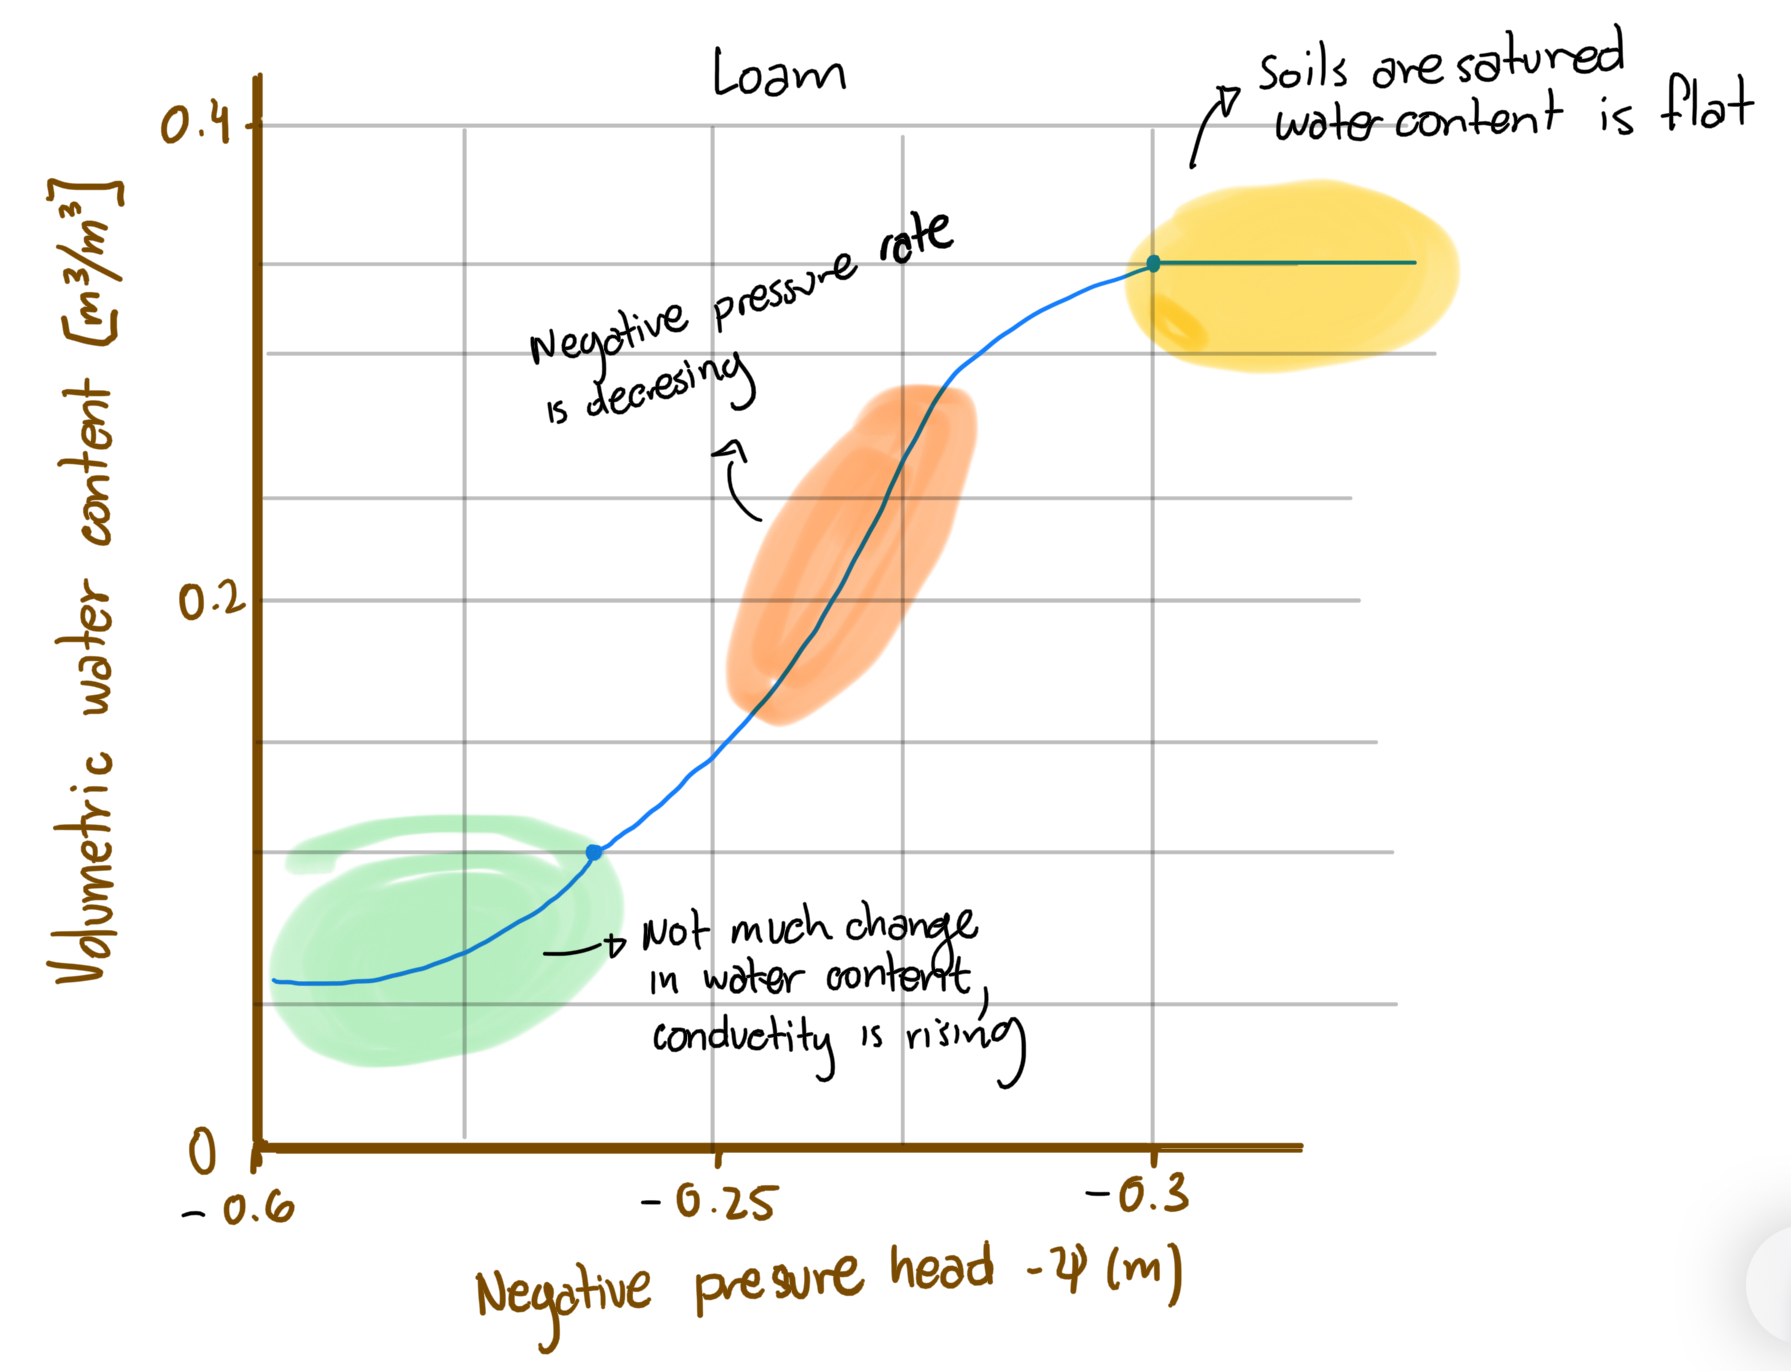 Loam
Soils are satured
water content is flat
Negative pressure rate
is decresing
Not much change
in water content,
conductity is rising
Volumetric water content [m³/m³]
0.4
0.2
0
-0.6
-0.25
-0.3
Negative presure head -ψ (m)